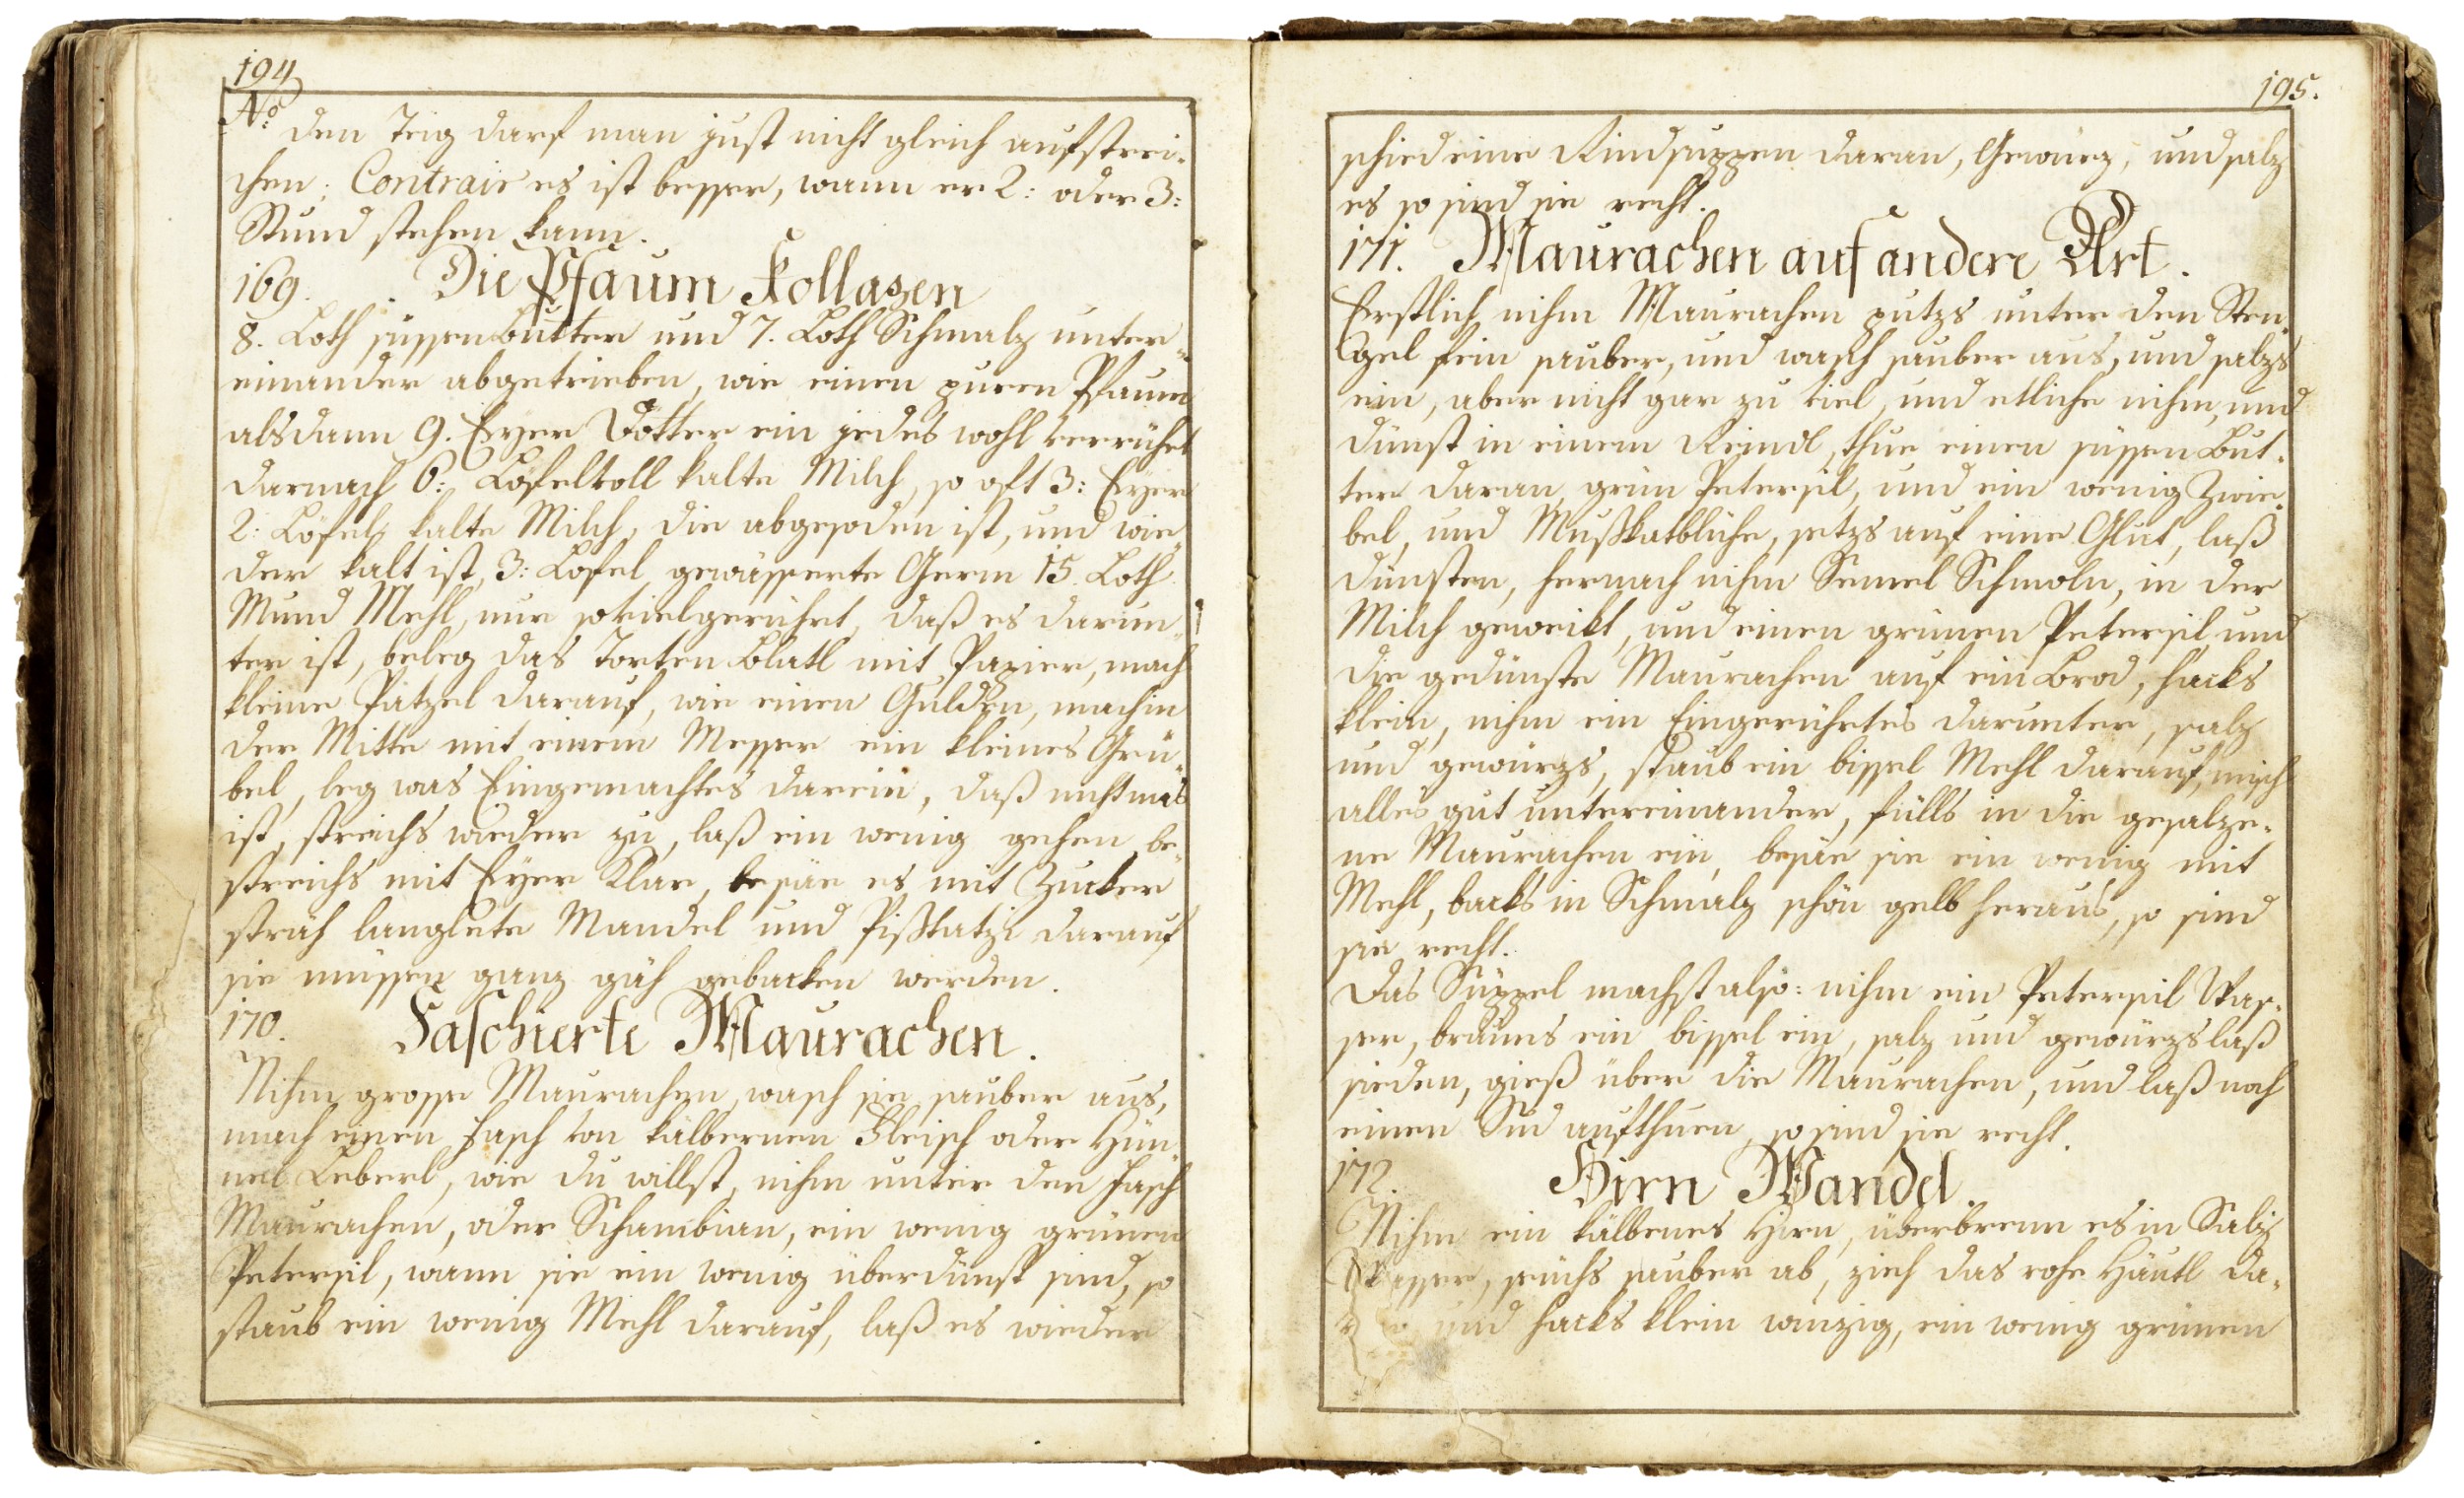 194
No:
den Teig darf man just nicht gleich aufstrei-
chen; Contrair es ist besser, wann er 2: oder 3:
Stund stehen kann.
169. Die Pfaum Kollazen
8. Loth süssen Butter und 7. Loth Schmalz unter-
einander abgetrieben, wie einen puren Pfaum
alsdann 9. Eyer Dötter ein jedes wohl verrührt
darnach 6: Löfelvoll kalte Milch, so oft 3: Eyer
2: Löfel kalte Milch, die abgesoden ist, und wie-
der kalt ist, 3: Löfel gewässerte Germ 15. Loth
Mund Mehl, nur soviel gerührt, daß es darun-
ter ist, beleg das Torten Blatl mit Papier, mach
kleine Patzel darauf, wie einen Gulden, mach in
der Mitte mit einem Messer ein kleines Grü-
bel, leg was Eingemachtes darein, daß nicht
ist, streichs wieder zu, laß ein wenig gehen be-
streichs mit Eyer Klar, besäe es mit Zucker
sträh langlete Mandel und Pißkatzi darauf
sie müssen ganz gäh gebacken werden.
170. Faschierte Maurachen.
Nihm grosse Maurachen, wasch sie sauber aus,
mach einen Fasch von kälbernen Fleisch oder Hün-
nel Leberl, wie du willst, nihm unter den Fasch
Maurachen, oder Schambian, ein wenig grünen
Petersil, wann sie ein wenig überdünst sind, so
staub ein wenig Mehl darauf, laß es wieder
195.
schied eine Rindsuppen daran, Gewürz, und salz
es so sind sie recht.
171. Maurachen auf andere Art.
Erstlich nihm Maurachen putzs unter den Sten-
gel fein sauber, und wasch sauber aus, und salzs
ein, aber nicht gar zu viel, und etliche nihm, und
dünst in einem Reindl, thue einen süssen But-
ter daran, grün Petersil, und ein wenig Zwie-
bel, und Mußkatblühe, setzs auf eine Glut, laß
dünsten, hernach nihm Semel Schmoln, in der
Milch geweikt, und einen grünen Petersil und
die gedünste Maurachen auf ein Bred, hacks
klein, nihm ein Eingerührtes darunter, salz
und gewürzs, staub ein bissel Mehl darauf, misch
alles gut untereinander, fülls in die gesalze-
ne Maurachen ein, besäe sie ein wenig mit
Mehl, backs in Schmalz schön gelb heraus, so sind
sie recht.
Das Süppel machst also: nihm ein Petersil Was-
ser, bräuns ein bissel ein, salz und gewürzs laß
sieden, gieß über die Maurachen, und laß noch
einen Sud aufthuen, so sind sie recht.
172. Hirn Wandel.
Nihm ein kälbenes Hirn, überbrenn es in Salz
Wasser, seichs sauber ab, zieh das rohe Häutl da-
und hacks klein winzig, ein wenig grünen